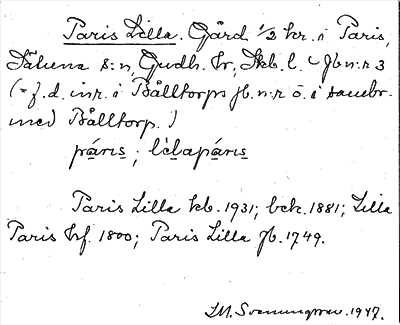 Paris Lilla. Gård 1/2 kr. i Paris,
Säluna s:n, Gudh. hr, Skb. l. – Jb n:r 3
(= f. d. inr. i Bålltorps jb. n:r ö. i sambr.
med Bålltorp.)
páris; lìlapáris
Paris Lilla kb. 1931; bek. 1881; Lilla
Paris hf. 1800; Paris Lilla jb. 1749.
1947.